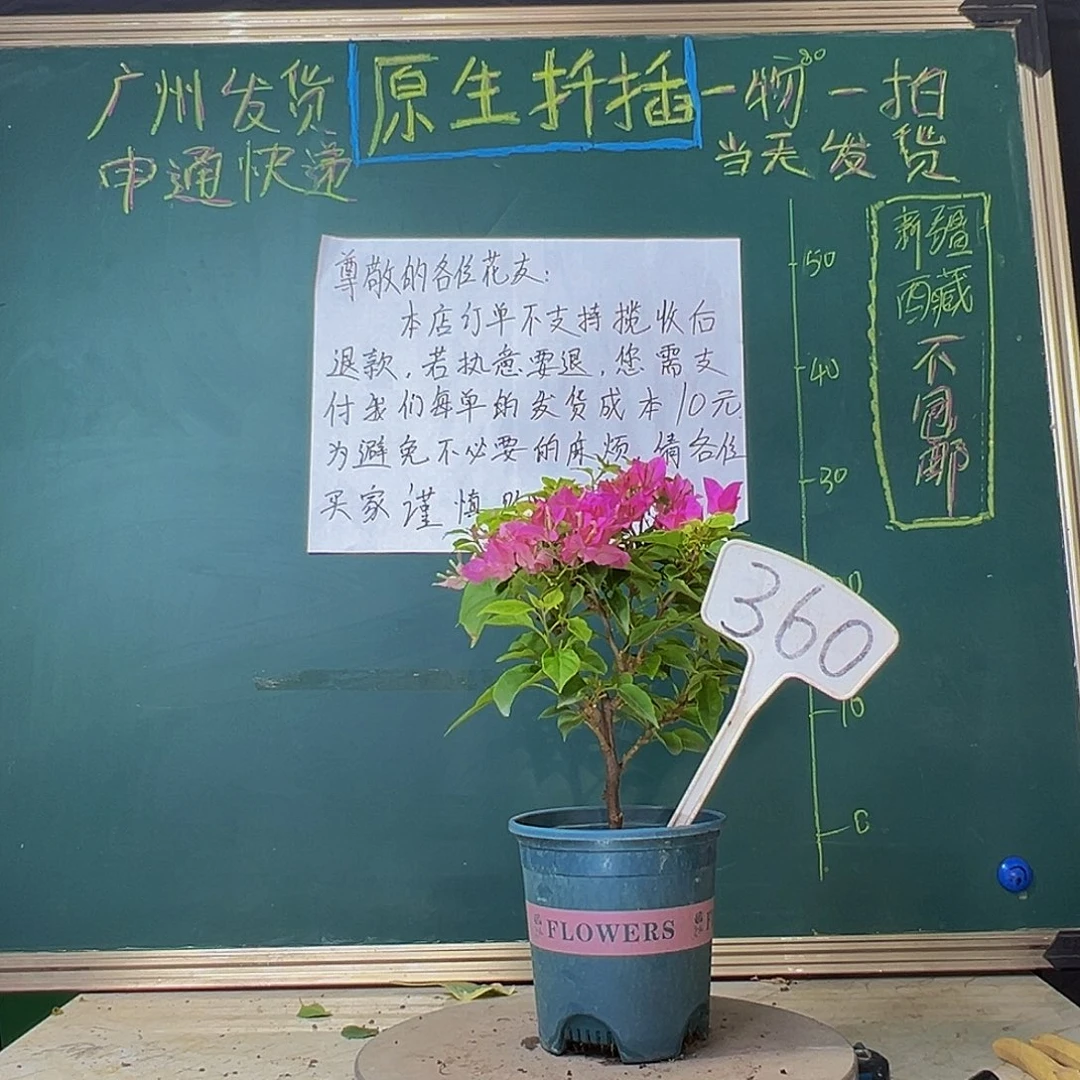 广州发货
申通快递
原生扦插
一物一拍
80
当天发货
新疆
西藏
不
包
邮
尊敬的各位花友：
本店订单不支持揽收后
退款，若执意要退，您需支
付我们每单的发货成本10元
为避免不必要的麻烦 各位
买家谨慎
50
40
30
10
0
360
FLOWERS